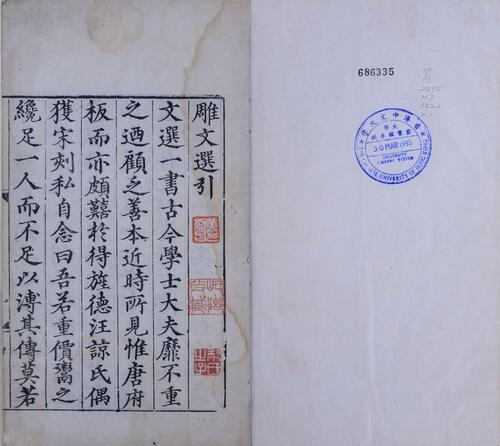 雕文選引
文選一書古今學士大夫靡不重
之迺顧之善本近時所見惟唐府
板而亦頗囏於得旌德汪諒氏偶
獲宋刻私自念曰吾若重價鬻之
纔足一人而不足以溥其傳莫若
686335
香港中文大學
大學
圖書館系統
30 MAR 1993
UNIVERSITY
LIBRARY SYSTEM
THE CHINESE UNIVERSITY OF HONG KONG